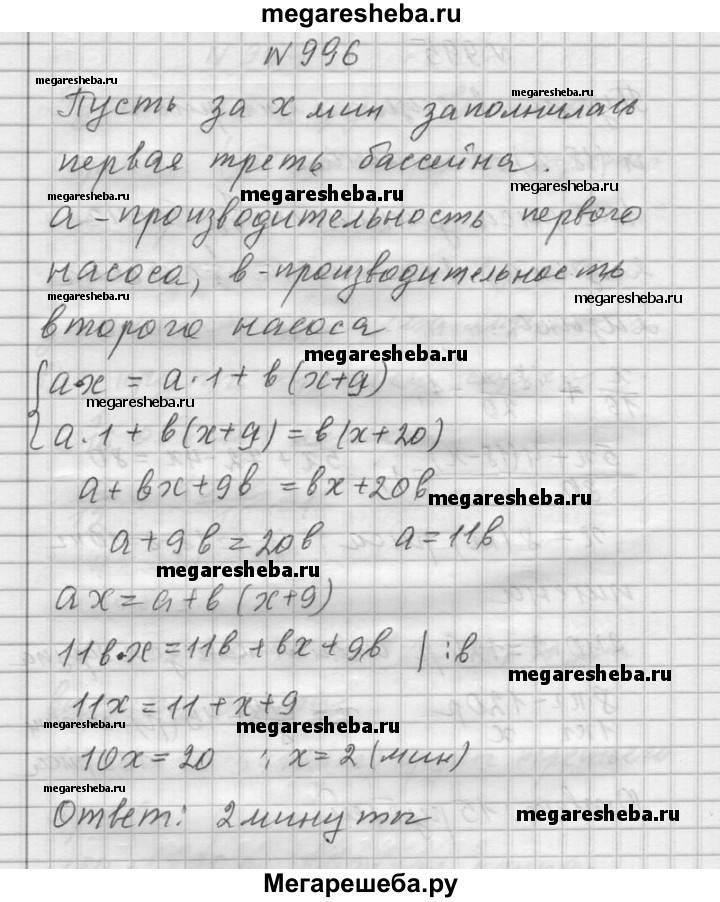 megaresheba.ru
N 996
megaresheba.ru
Пусть за x мин заполнилась
megaresheba.ru
первая треть бассейна.
megaresheba.ru
megaresheba.ru
a - производительность первого
megaresheba.ru
насоса, в - производительность
megaresheba.ru
megaresheba.ru
второго насоса
megaresheba.ru
{ a·x = a·1 + в(x+9)
megaresheba.ru
a·1 + в(x+9) = в(x+20)
a + вx + 9в = вx + 20в
megaresheba.ru
a + 9в = 20в a = 11в
megaresheba.ru
ax = a + в(x+9)
11в·x = 11в + вx + 9в | :в
megaresheba.ru
11x = 11 + x + 9
megaresheba.ru
megaresheba.ru
10x = 20 ; x = 2 (мин)
megaresheba.ru
Ответ: 2 минуты
megaresheba.ru
Мегарешеба.ру